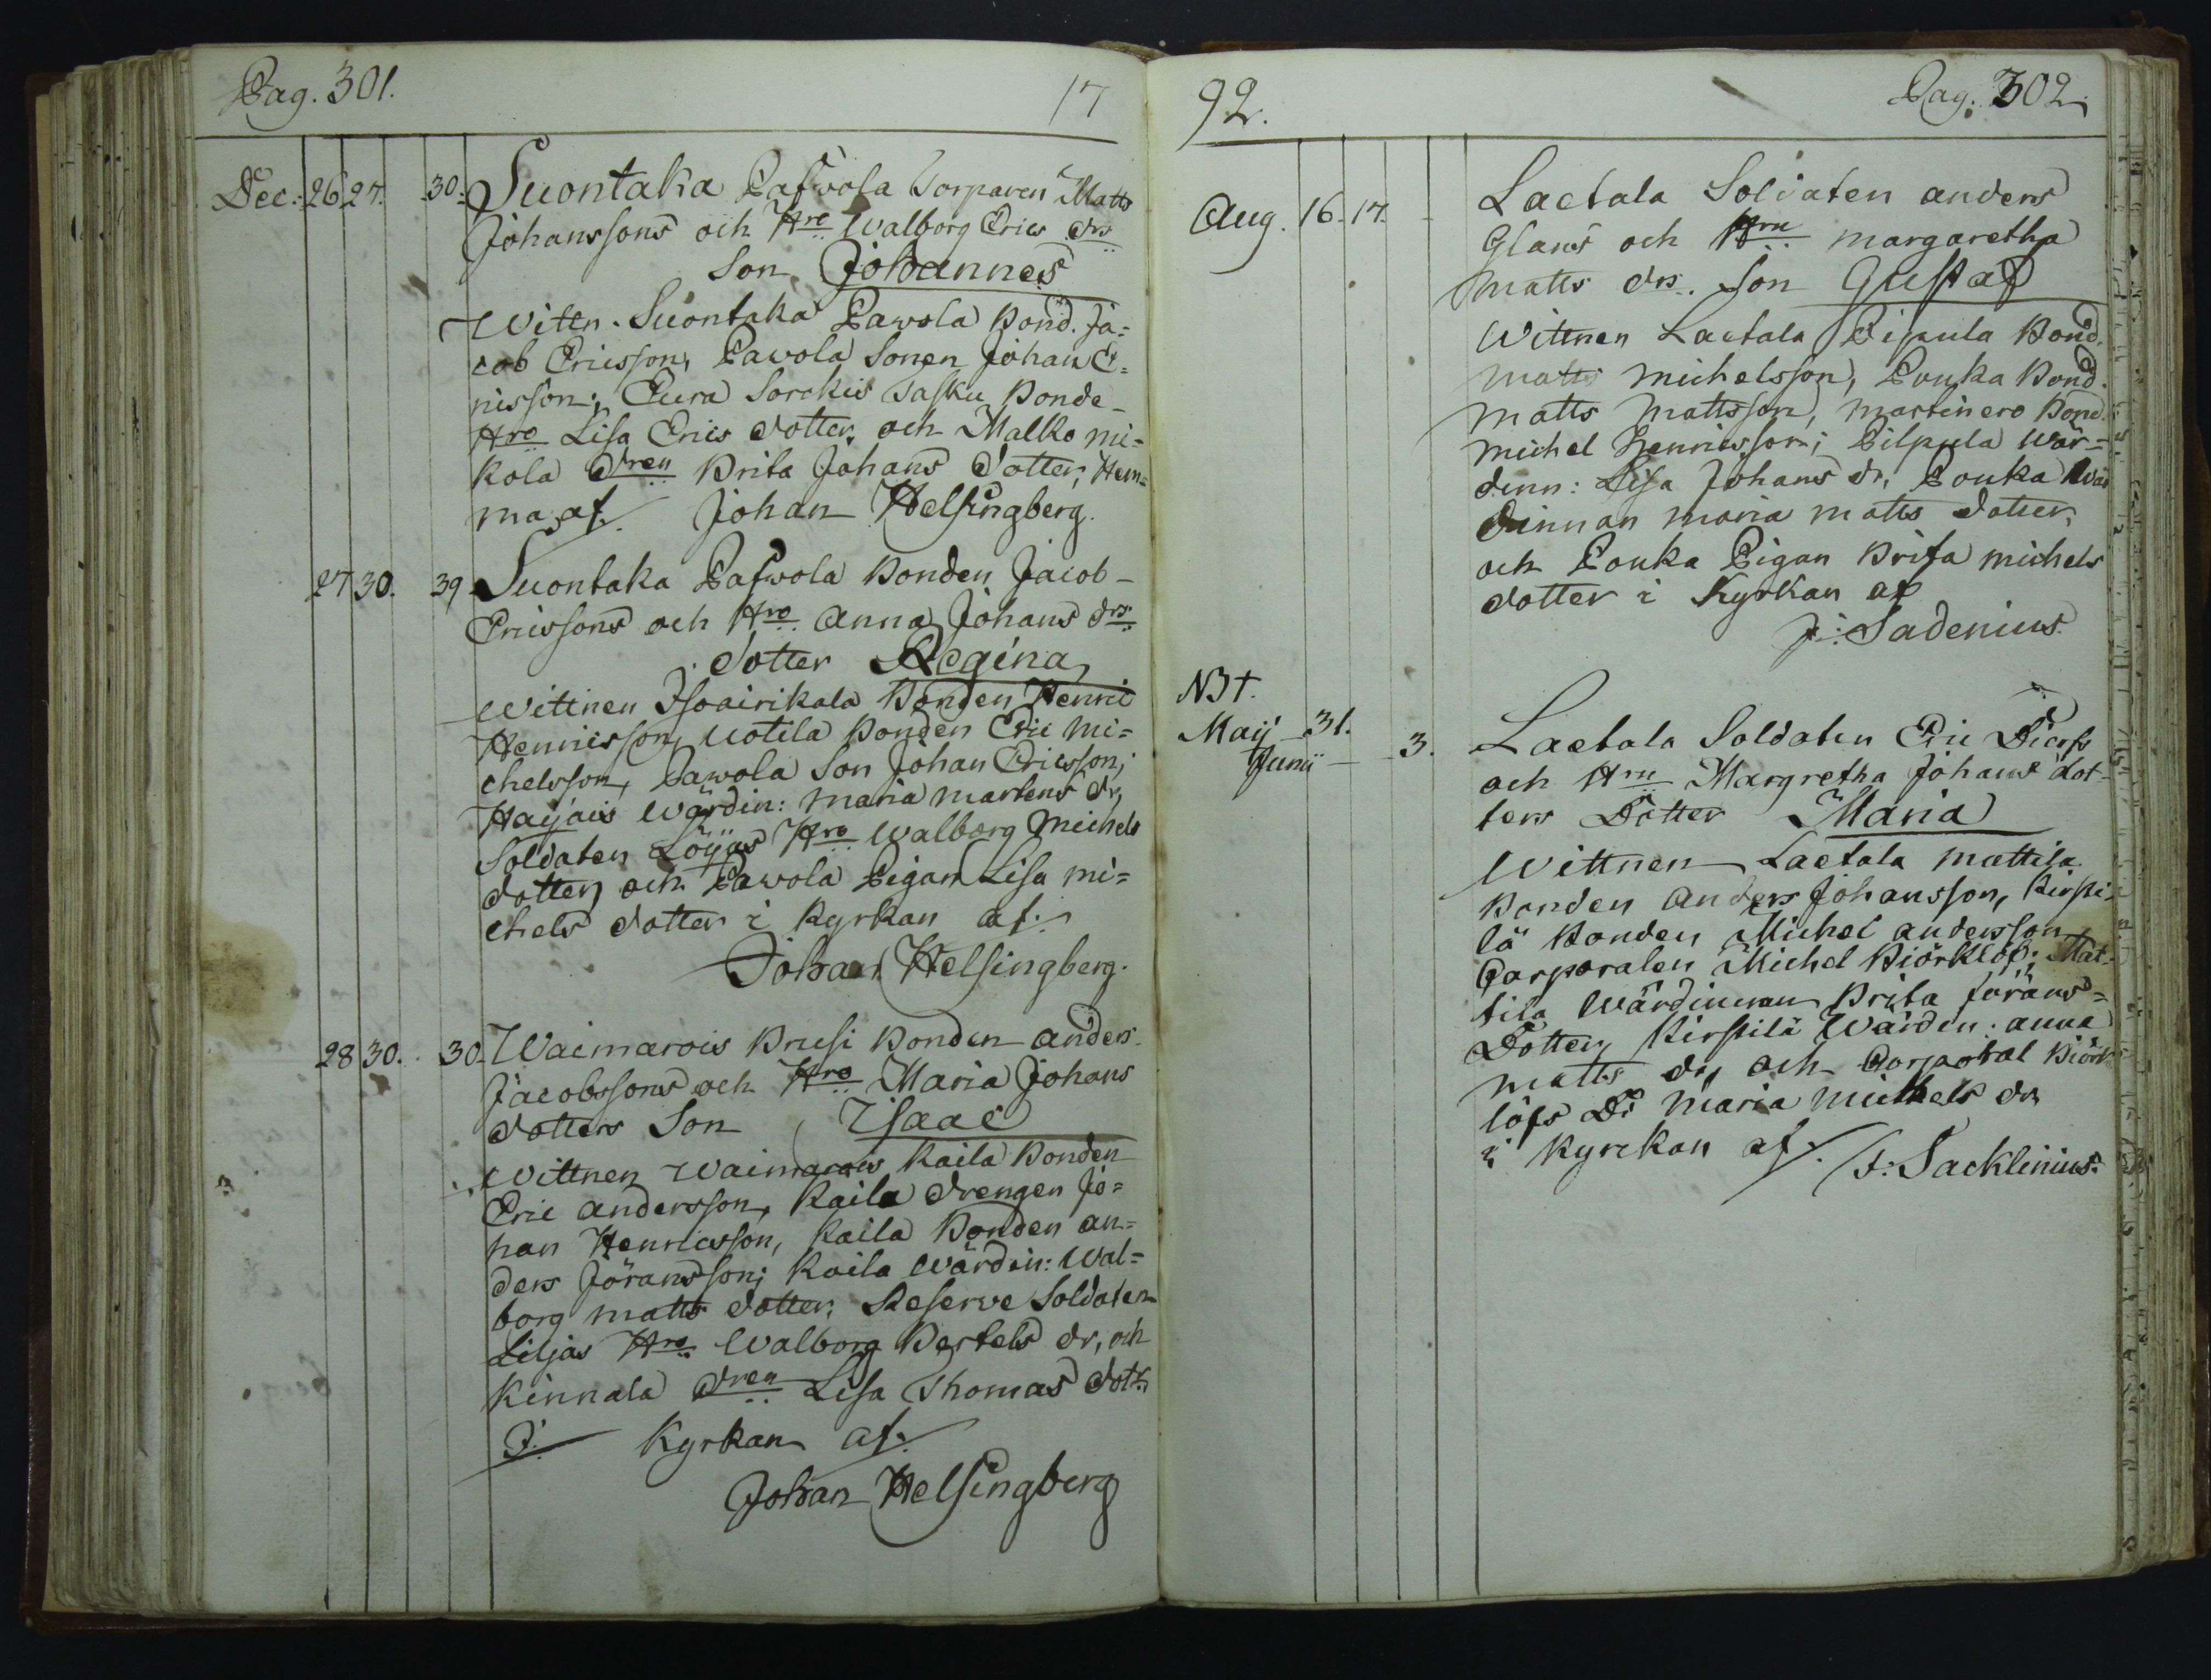 Pag. 301. 17
Dec. 26 27. 30. Suontaka Pafwola Torparen Matts
Johanssons och Hro Walborg Erics drs
Son Johannes
Wittn. Suontaka Pawola Bond. Ja=
cob Ericsson, Pawola Sonen Johan E=
ricsson; Eura Sorckis Tasku Bonde-
Hro Lisa Erics dotter, och Malko mi=
kola dren Brita Johans Dotter, Hem=
ma af. Johan Helsingberg.
27 30. 39 Suontaka Pafwola Bonden Jacob-
Ericssons och Hro Anna Johans drs
Dotter Regina
Wittnen Isoairikala Bonden Henric
Henricsson, Uotila Bonden Eric Mi=
chelsson, Pawola Son Johan Ericsson;
Haijais Wärdin: Maria Martens dr,
Soldaten Löijas Hro Walborg Michels
dotter, och Pawola Pigan Lisa mi=
chels dotter i Kyrkan af.
Johan Helsingberg.
28 30. 30. Waimarois Brusi Bonden Anders
Jacobssons och Hro Maria Johans
dotters Son Isaac
Wittnen Waimarois Kaila Bonden
Eric Andersson, Kaila Drengen Jo=
han Henricsson, Kaila Bonden An=
ders Jöransson; Kaila Wärdin: Wal=
borg Matts dotter, Reserve Soldaten
Liljas Hro Walborg Bertels dr, och
Kinnala dren Lisa Thomas dott.
I Kyrkan af.
Johan Helsingberg
92. Pag. 302.
Aug. 16. 17. Lactala Soldaten Anders
Glans och Hru Margaretha
Matts drs. Son Gustaf
Wittnen Lactala Pipula Bond.
Matts Michelsson, Pouka Bond.
Matts Mattsson, Martinero Bond.
Michel Henricsson; Pilpula Wär=
dinn: Lisa Johans dr, Pouka Wär
dinnan Maria Matts dotter,
och Pouka Pigan Brita Michels
dotter i Kyrkan af
J: Sadenius.
NB †.
Maij 31. Lactala Soldaten Eric
Junii 3. och Hru Margretha Johans dot-
ters Dotter Maria
Wittnen Lactala Mattila
Bonden Anders Johansson, Kirsti-
lä Bonden Michel Andersson
Corporalen Michel Biörklöf; Mat-
tila Wärdinnan Brita Jörans=
Dotter, Kirstilä Wärdin: Anna
Matts dr, och Corporal Biörk
löfs Dr Maria Michels dr
i Kyrckan af. J: Sacklinius.